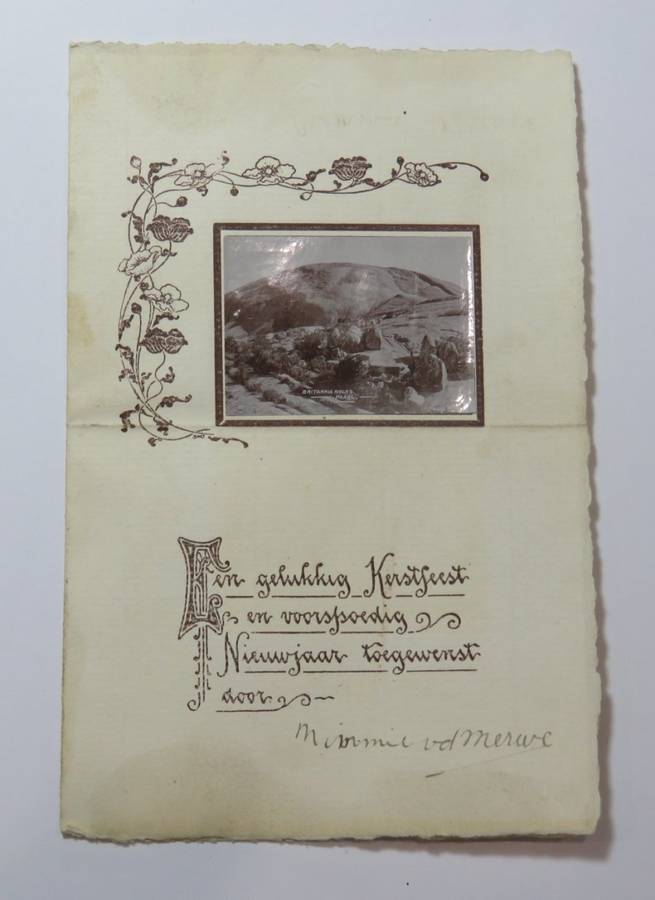 BRITANNIA ROCKS
PAARL
Een gelukkig Kerstfeest
en voorspoedig
Nieuwjaar toegewenst
door
Minnie vd Merwe